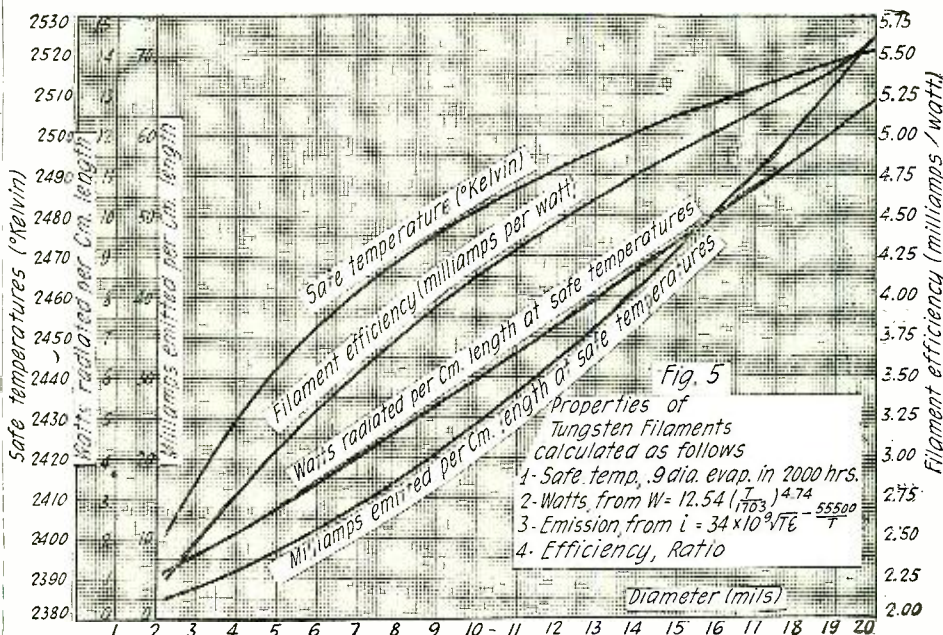 2530
2520
2510
2500
2490
2480
2470
2460
2450
2440
2430
2420
2410
2400
2390
2380
Safe temperatures (°Kelvin)
Watts radiated per Cm. length
Milliamps emitted per cm. length
70
60
50
5.75
5.50
5.25
5.00
4.75
4.50
4.25
4.00
3.75
3.50
3.25
3.00
2.75
2.50
2.25
2.00
Filament efficiency (milliamps / watt.)
Safe temperature (°Kelvin)
Filament efficiency (milliamps per watt)
Watts radiated per Cm. length at safe temperatures
Milliamps emitted per Cm. length at safe temperatures
Fig. 5
Properties of
Tungsten Filaments
calculated as follows
1- Safe temp., .9 dia. evap. in 2000 hrs.
2- Watts, from W = 12.54 (T/1703)4.74
3- Emission from i = 34 × 10⁹√Tε - 55500/T
4- Efficiency, Ratio
Diameter (mils)
1 2 3 4 5 6 7 8 9 10 - 11 12 13 14 15 16 17 18 19 20